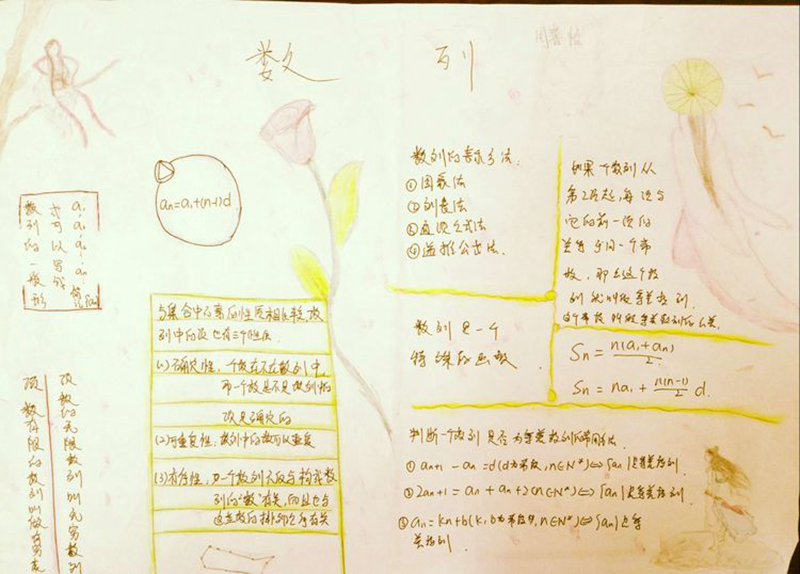 数列
数列的一般形
式可以写成
a₁,a₂,a₃,
aₙ=a₁+(n-1)d
与集合中元素的性质相比较,数
列中的项也有三个性质
(1)确定性,一个数在不在数列中,
即一个数是不是数列中的
项是确定的
(2)可重复性:数列中的数可以重复
(3)有序性,一个数列不仅与构成数
列的“数”有关,而且也与
这些数的排列次序有关
项数有限的数列叫做有穷数
项数的无限数列叫无穷数列
数列的表示方法:
①图象法
②列表法
③通项公式法
④递推公式法.
如果一个数列从
第2项起,每一项与
它的前一项的
差等于同一个常
数,那么这个数
列就叫做等差数列.
这个常数叫做等差数列的公差.
数列是一个
特殊的函数
Sₙ=n(a₁+aₙ)/2
Sₙ=na₁+n(n-1)/2 d.
判断一个数列是否为等差数列的常用方法.
① aₙ₊₁-aₙ=d(d为常数,n∈N*)⇔{aₙ}是等差数列.
② 2aₙ₊₁=aₙ+aₙ₊₂(n∈N*)⇔{aₙ}是等差数列.
③ aₙ=kn+b(k,b为常数,n∈N*)⇔{aₙ}是等
差数列.